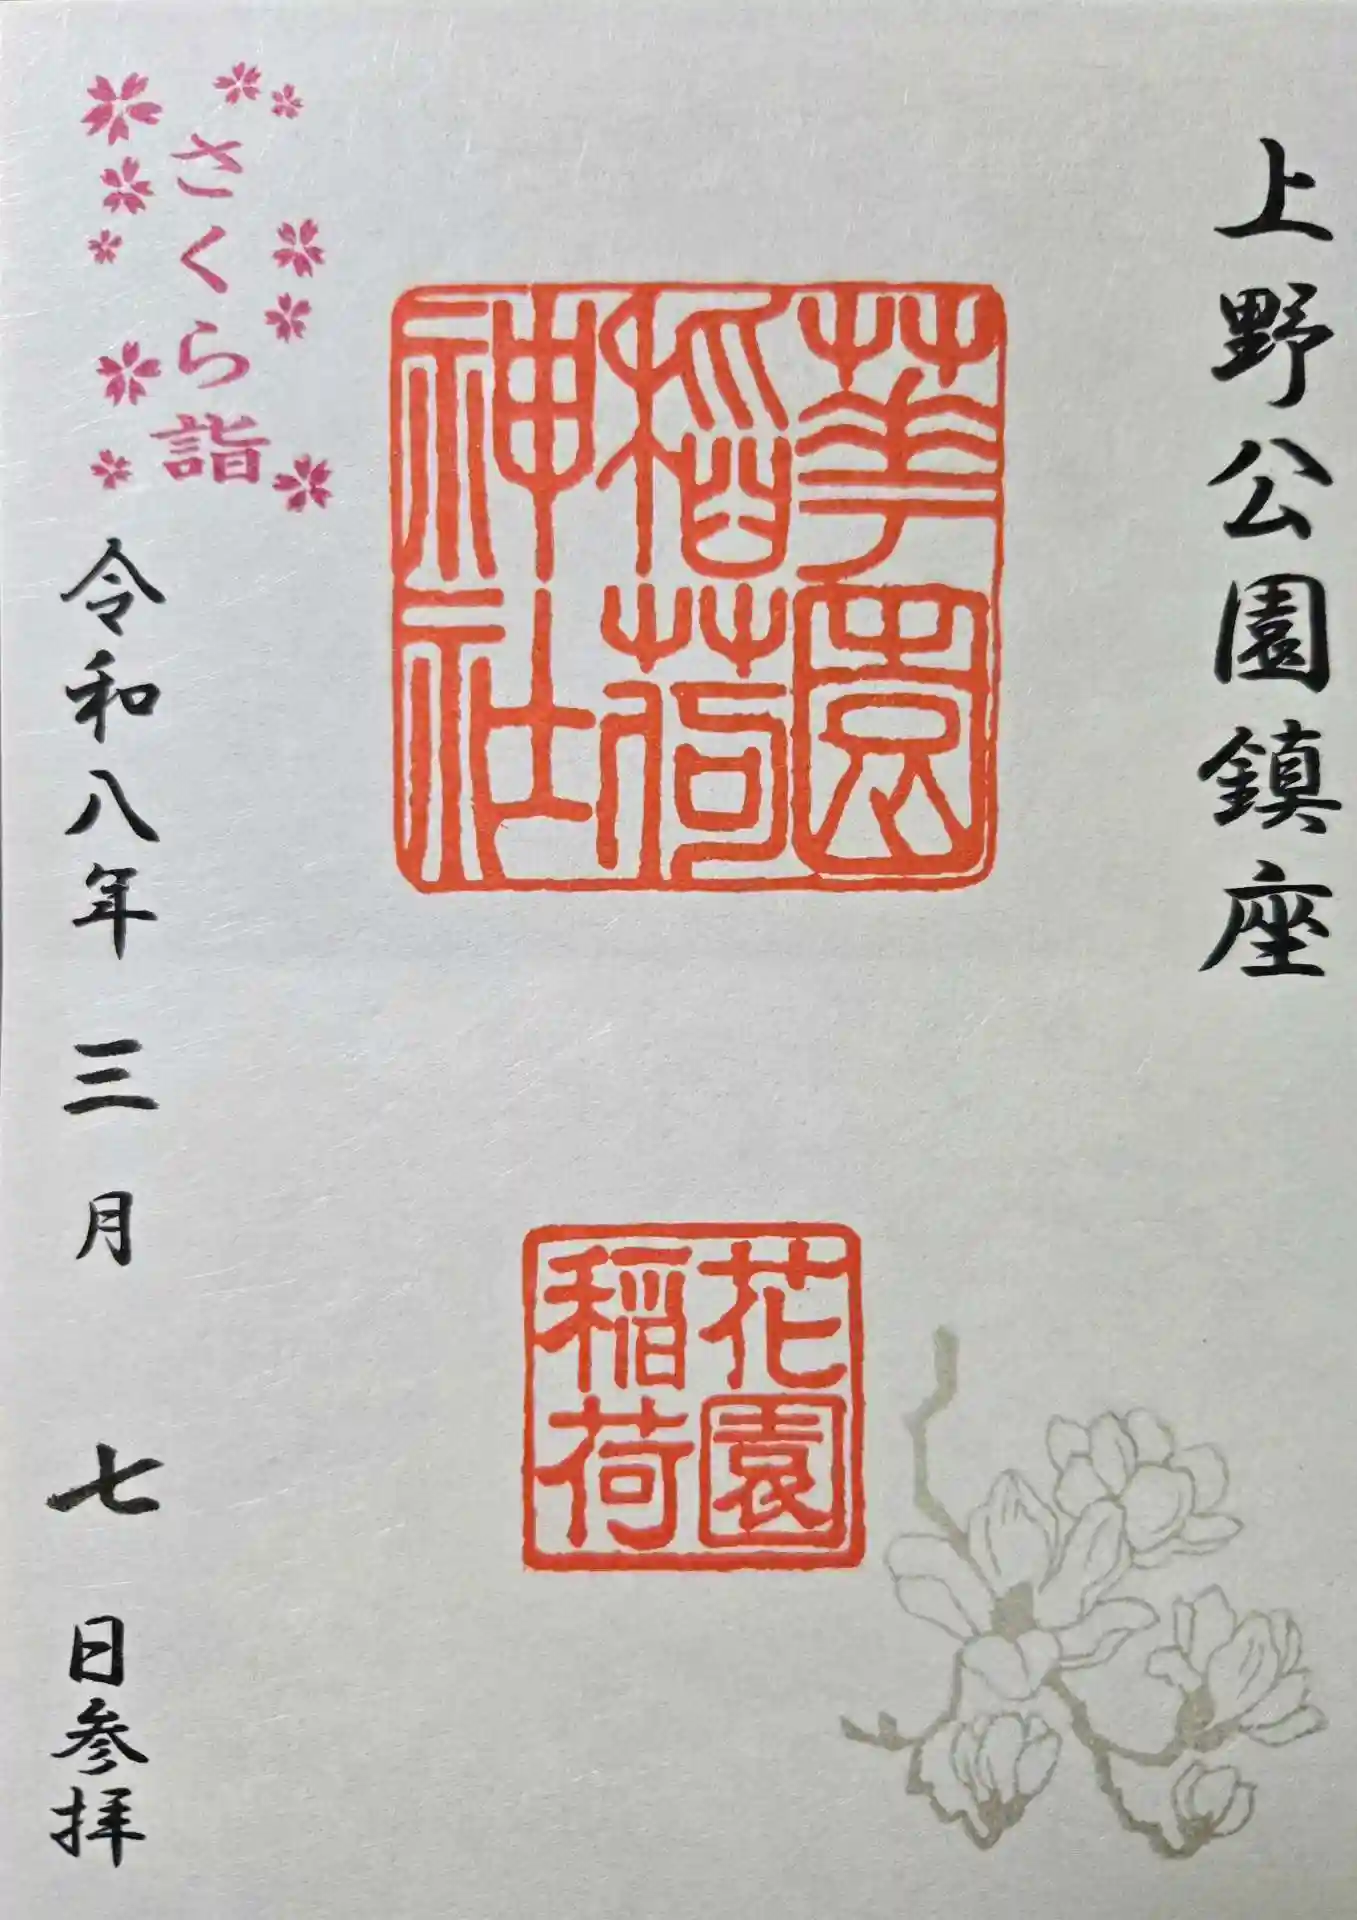 上野公園鎮座
華園
稲荷
神社
花園
稲荷
さくら詣
令和八年三月七日参拝